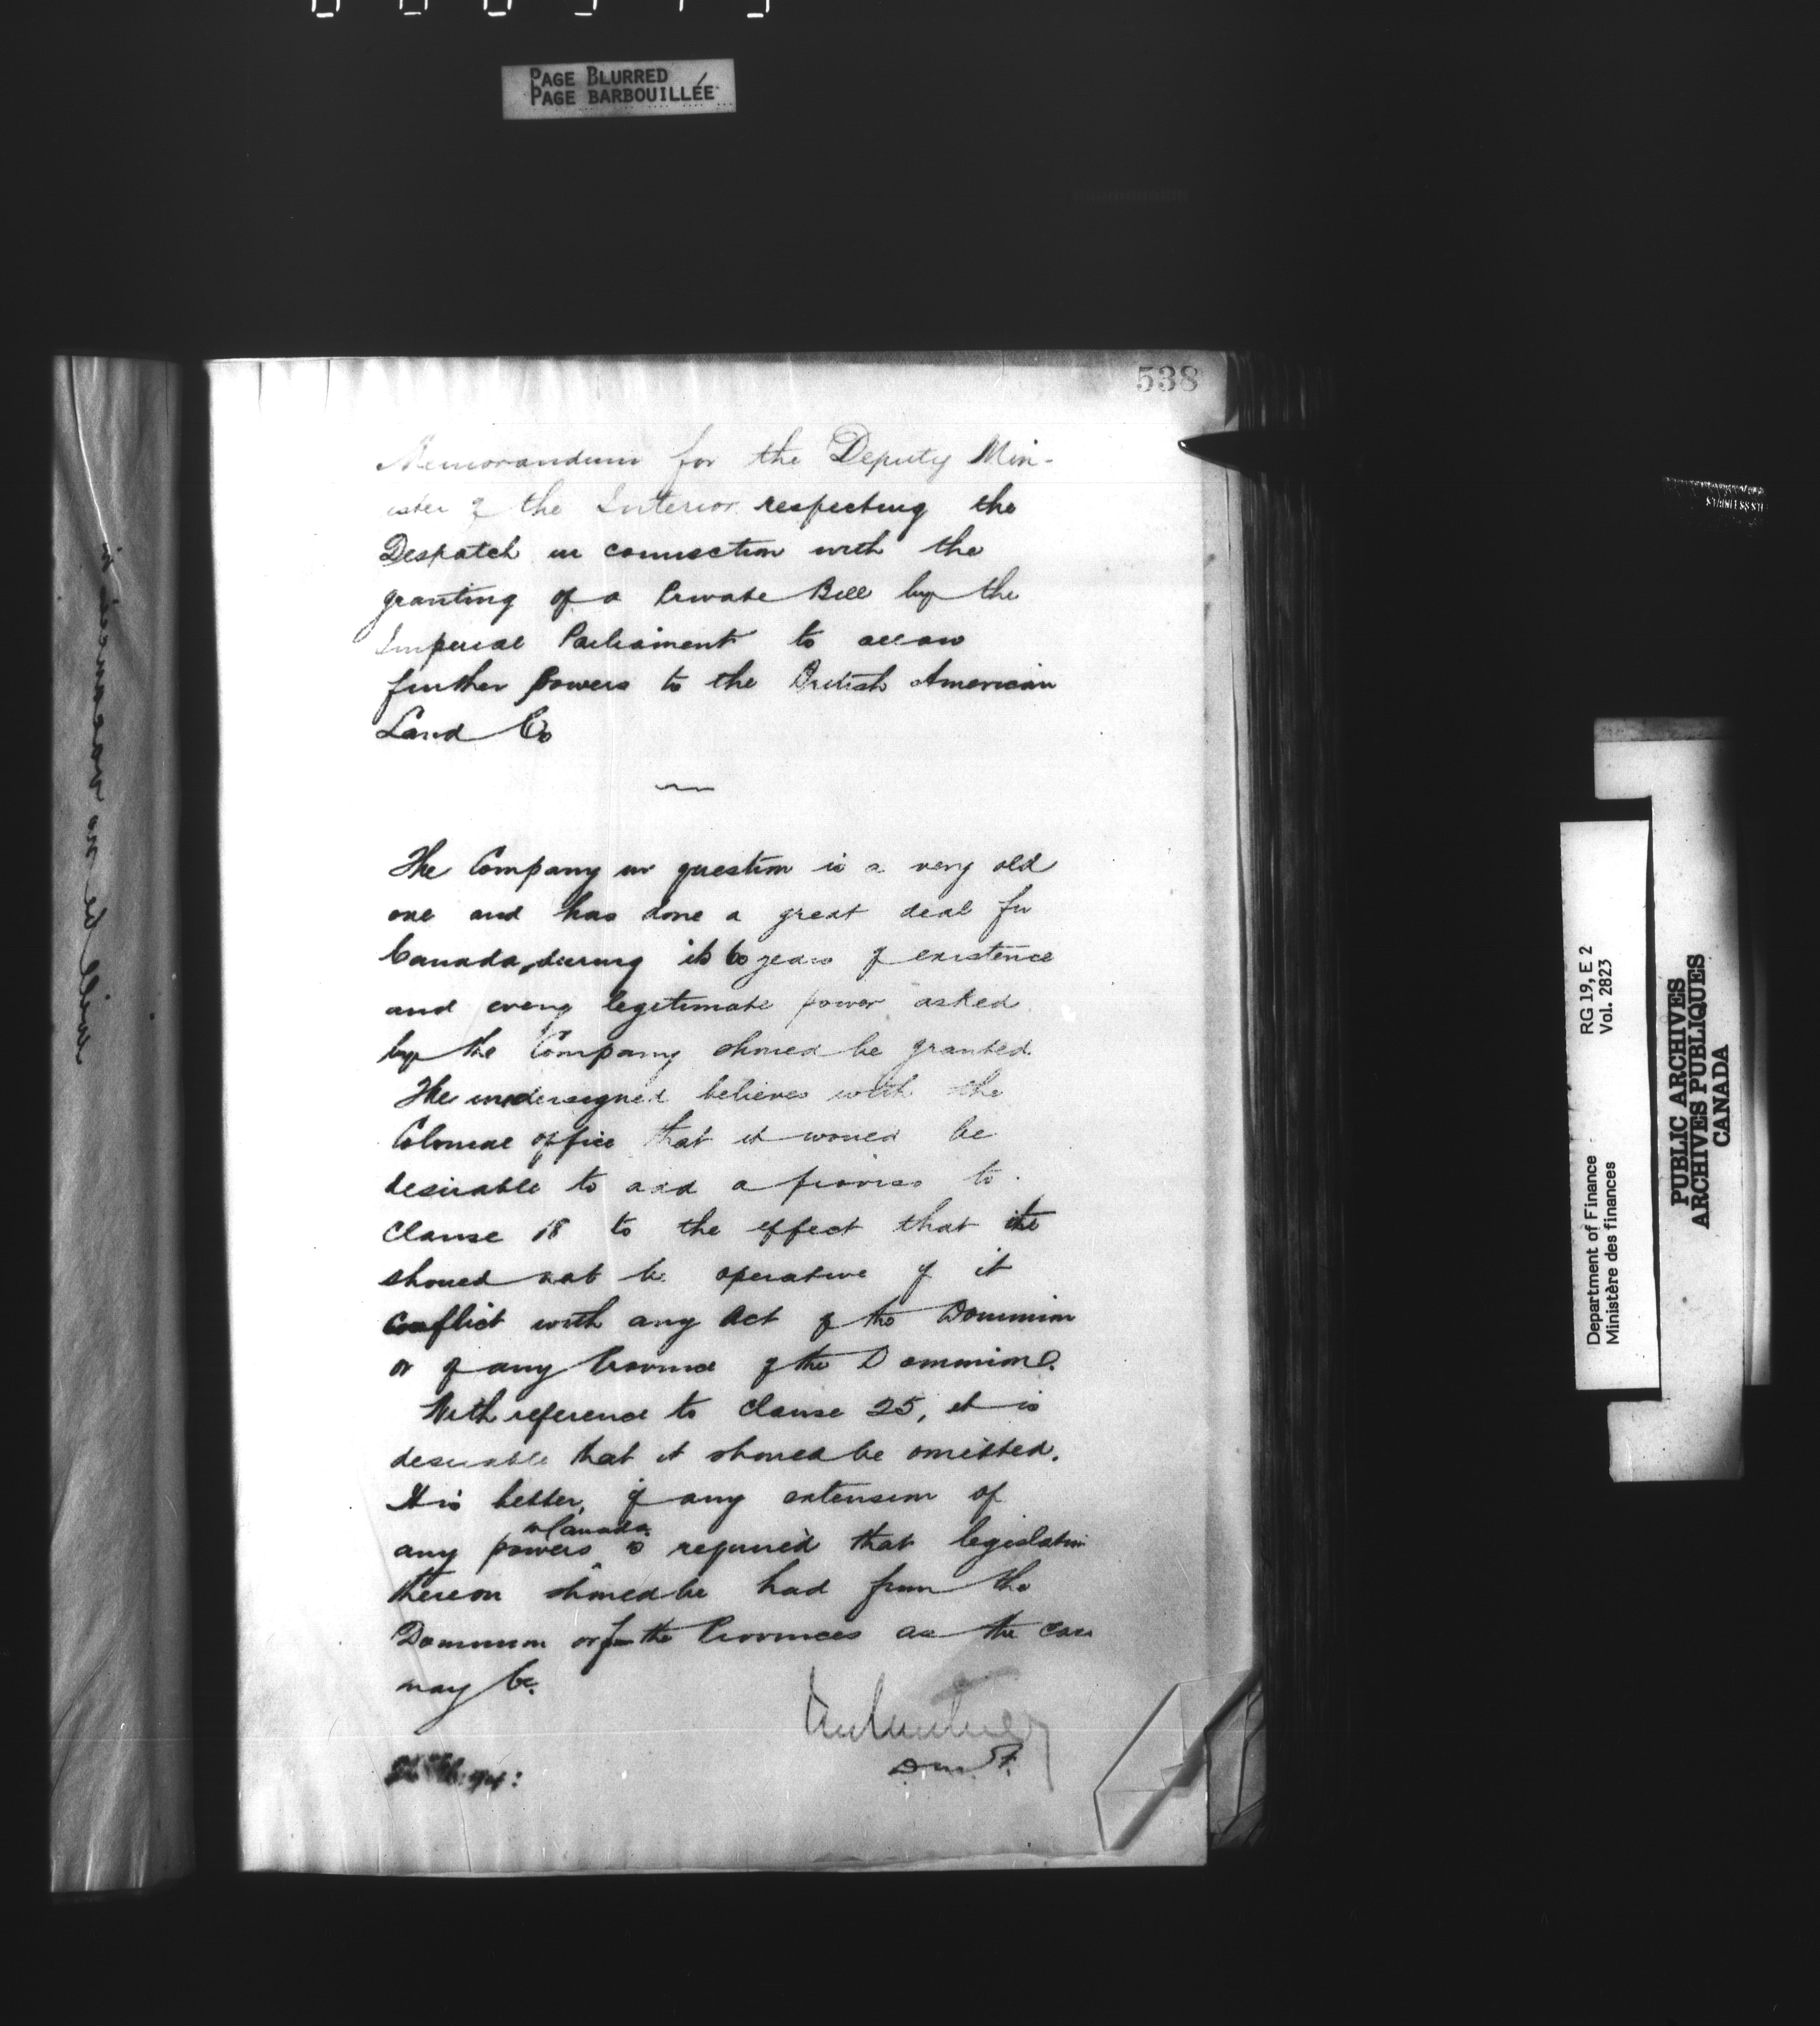 PAGE BLURRED
PAGE BARBOUILLÉE
538
Memorandum for the Deputy Min-
ister of the Interior respecting the
Despatch in connection with the
granting of a Private Bill by the
Imperial Parliament to allow
further powers to the British American
Land Co
The Company in question is a very old
one and has done a great deal for
Canada, during its 60 years of existence
and every legitimate power asked
by the Company should be granted.
The undersigned believes with the
Colonial office that it would be
desirable to add a proviso to
Clause 18 to the effect that it
should not be operative if it
Conflict with any Act of the Dominion
or of any Province of the Dominion.
With reference to Clause 25, it is
desirable that it should be omitted.
It is better, if any extension of
any powers in Canada is required that legislation
thereon should be had from the
Dominion or from the Provinces as the case
may be.
D.M.F.
RG 19, E 2
Vol. 2823
Department of Finance
Ministère des finances
PUBLIC ARCHIVES
ARCHIVES PUBLIQUES
CANADA